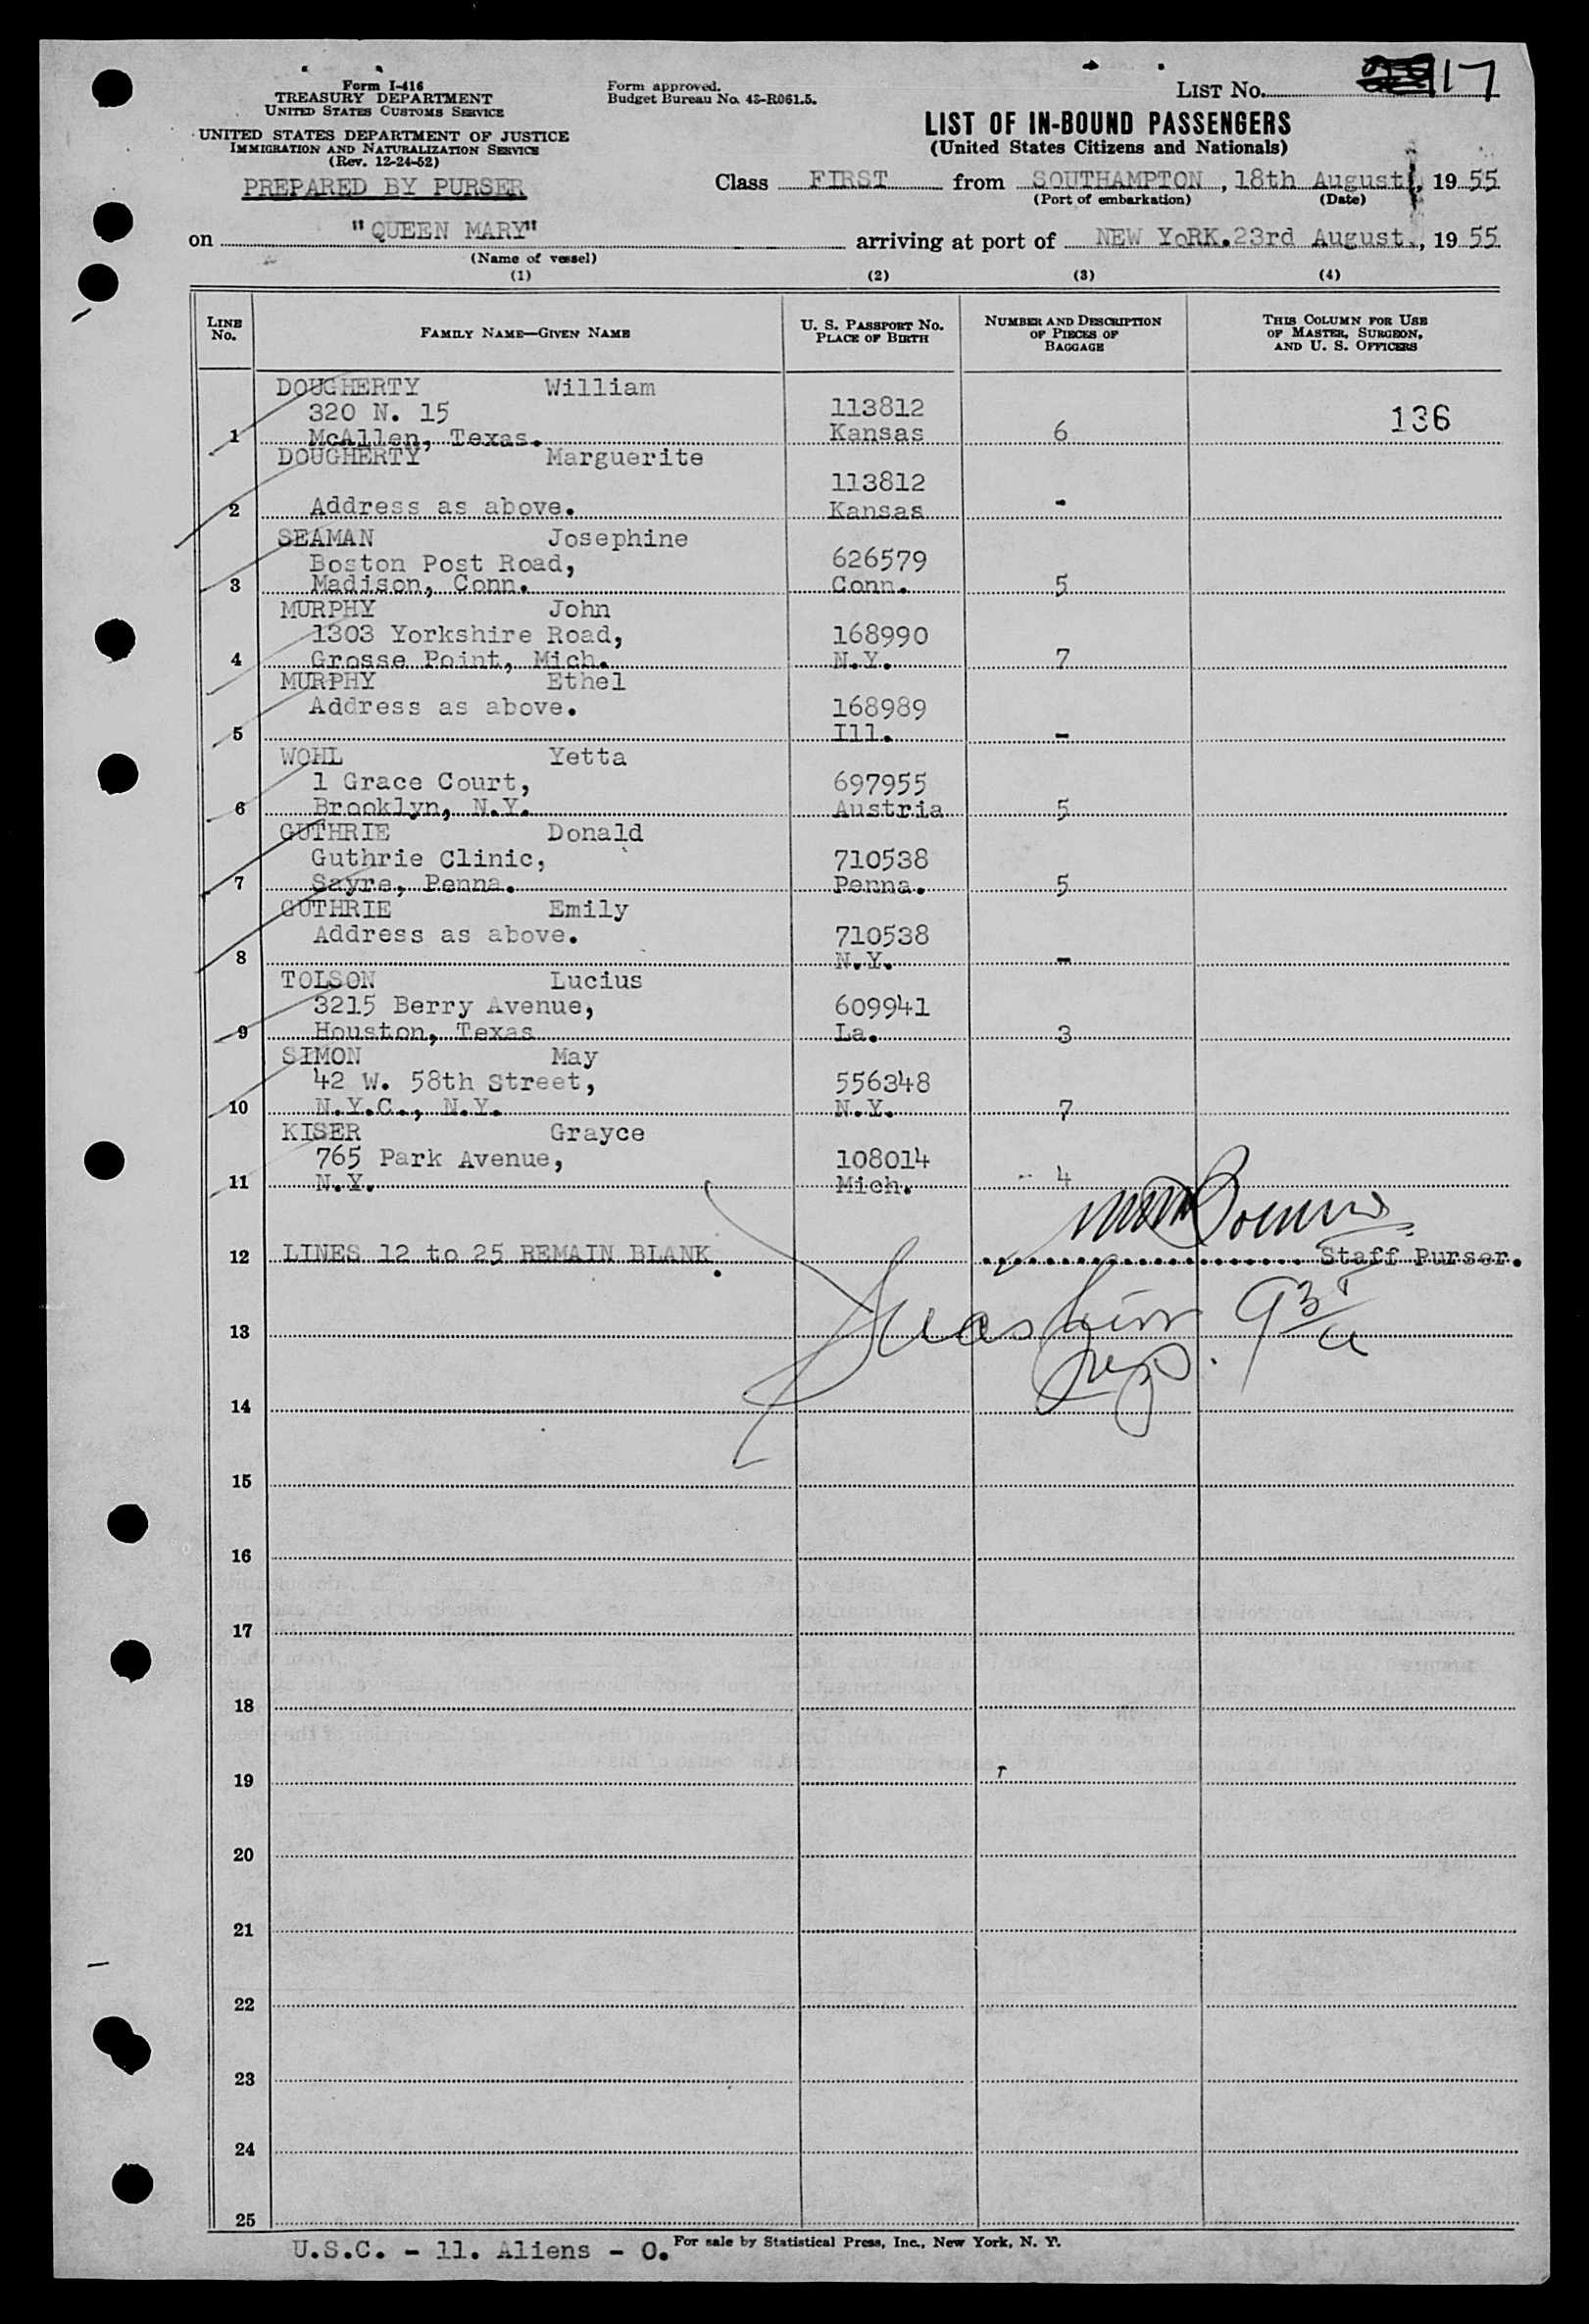 Form I-416
TREASURY DEPARTMENT
UNITED STATES CUSTOMS SERVICE
UNITED STATES DEPARTMENT OF JUSTICE
IMMIGRATION AND NATURALIZATION SERVICE
(Rev. 12-24-52)
PREPARED BY PURSER
Form approved.
Budget Bureau No. 43-R061.5.
LIST No. 17
LIST OF IN-BOUND PASSENGERS
(United States Citizens and Nationals)
Class FIRST from SOUTHAMPTON, 18th August, 19 55
(Port of embarkation) (Date)
on "QUEEN MARY" arriving at port of NEW YoRK. 23rd August., 19 55
(Name of vessel)
(1) (2) (3) (4)
LINE No. FAMILY NAME—GIVEN NAME U. S. PASSPORT No. PLACE OF BIRTH NUMBER AND DESCRIPTION OF PIECES OF BAGGAGE THIS COLUMN FOR USE OF MASTER, SURGEON, AND U. S. OFFICERS
DOUGHERTY William
320 N. 15 113812 136
1 McAllen, Texas. Kansas 6
DOUGHERTY Marguerite
113812
2 Address as above. Kansas -
SEAMAN Josephine
Boston Post Road, 626579
3 Madison, Conn. Conn. 5
MURPHY John
1303 Yorkshire Road, 168990
4 Grosse Point, Mich. N.Y. 7
MURPHY Ethel
Address as above. 168989
5 Ill. -
WOHL Yetta
1 Grace Court, 697955
6 Brooklyn, N.Y. Austria 5
GUTHRIE Donald
Guthrie Clinic, 710538
7 Sayre, Penna. Penna. 5
GUTHRIE Emily
Address as above. 710538
8 N.Y. -
TOLSON Lucius
3215 Berry Avenue, 609941
9 Houston, Texas La. 3
SIMON May
42 W. 58th Street, 556348
10 N.Y.C., N.Y. N.Y. 7
KISER Grayce
765 Park Avenue, 108014
11 N.Y. Mich. 4
12 LINES 12 to 25 REMAIN BLANK. Staff Purser.
13
14
15
16
17
18
19
20
21
22
23
24
25
U.S.C. - 11. Aliens - 0. For sale by Statistical Press, Inc., New York, N. Y.